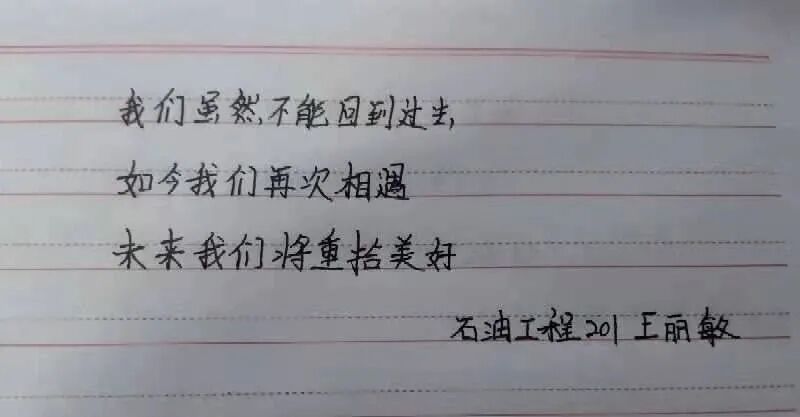 我们虽然不能回到过去,
如今我们再次相遇
未来我们将重拾美好
石油工程201 王丽敏